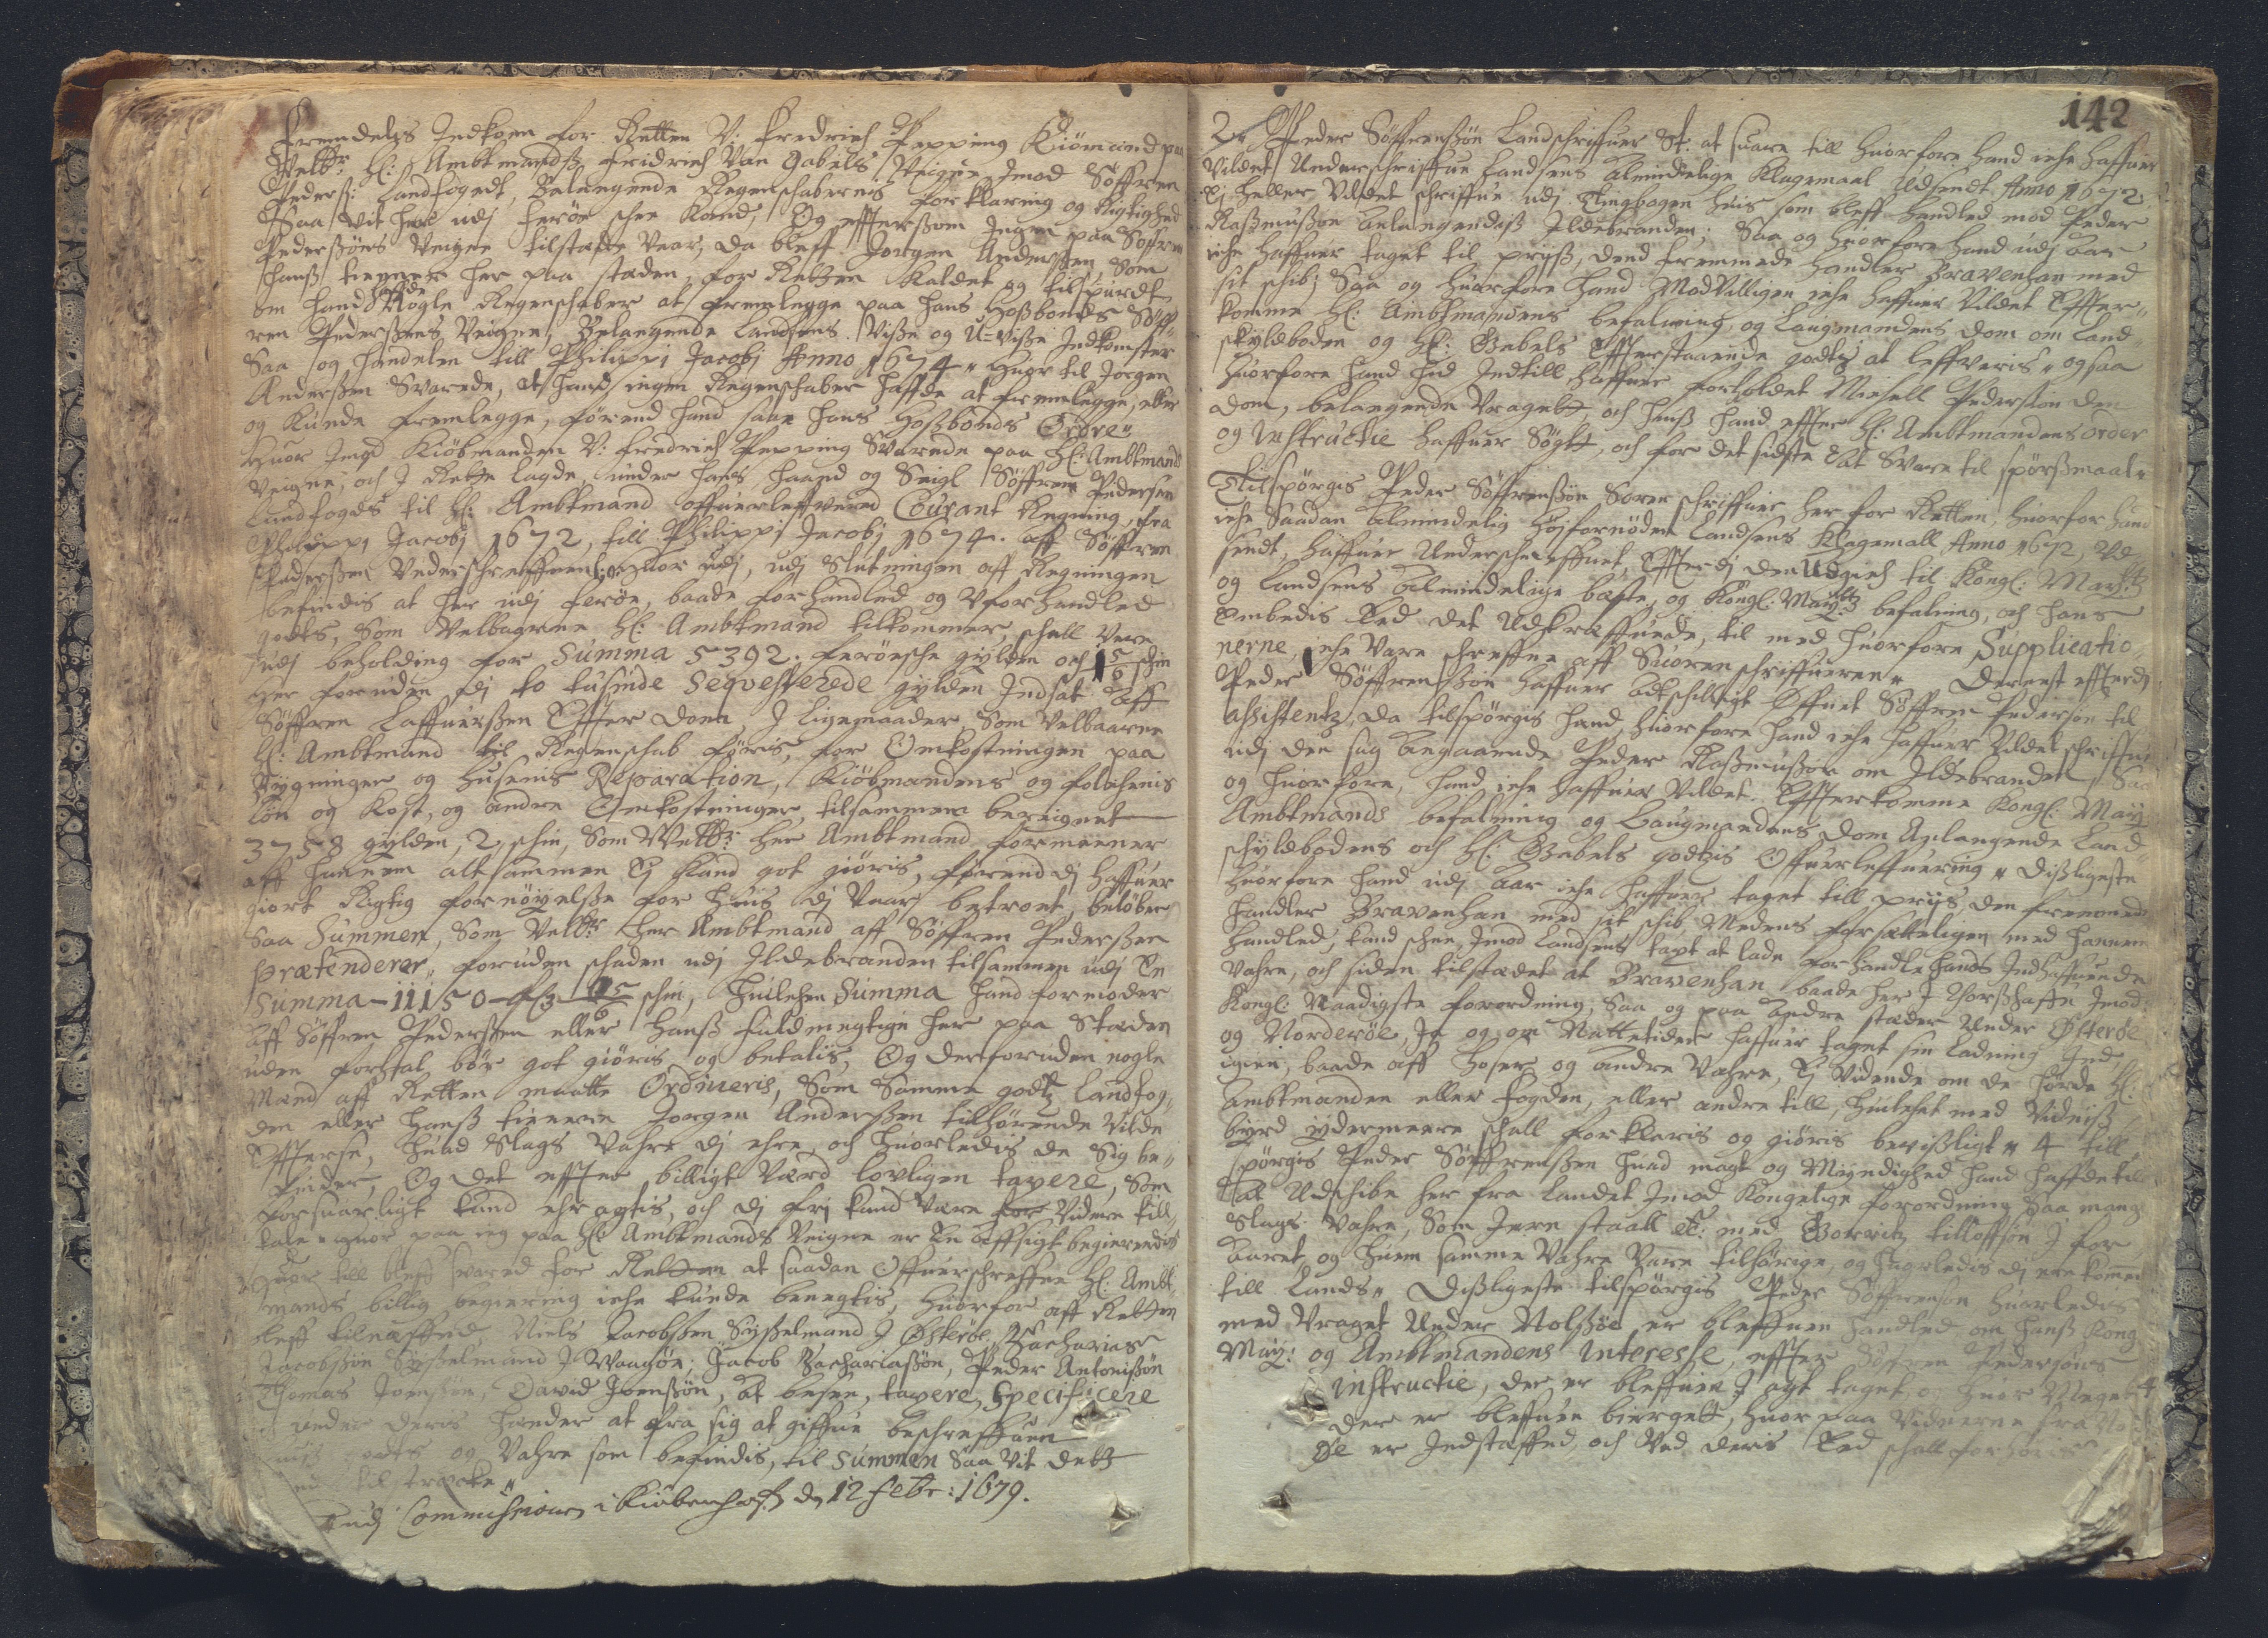 Fremdelis Indkom for Retten V: Fredrich Pepping Kiømand paa
Velb: H: Ambtmands Fridrich Van Gabels Veigne Imod Søffren
Pederß: Landfogedt, Belangende Regenschabernis forklaring og Rigtighed
Saa vit her udj Ferøe schee Kand, Og effterßom Ingen paa Søffren
Pederßøns Veigne tilstæde Vaar, da bleff Jørgen Anderßen, Som
hanß tienner her paa staden, for Retten Kaldet og tilspurdt
om hand haffde Nogle Regenschaber at fremlegge paa hans Hoßbonds Søff-
ren Pederßøns Veigne, Belangende Landsens Visse og U-visse Indkomster
Saa og Handelen till Philippi Jacobj Anno 1674 " Huor til Jørgen
Anderßen Svarede, at hand ingen Regenschaber haffde at fremlegge, eller
og Kunde fremlegge, førend hand saae hans Hoßbonds Ordre "
Huor Imod Kiøbmanden V: Fredrich Pepping Svarede paa H: Ambtmands
Veigne, och I Rette lagde, under hans Haand og Seigl Søffren Pedersen
Landfogds til H: Ambtmand offuerleffvered Courant Regning, fra
Philippi Jacobj 1672, till Philippi Jacobj 1674. aff Søffren
Pederßen Underschreffven, Huor udj, udj Slutningen aff Regningen
befindis at her udj Ferøe, baade forhandled og Uforhandled
godts, Som Velbaarne H: Ambtmand tilkommer, schall Vere
udj beholding for Summa 5392. ferøesche gylden och 15 schin
Her foruden dj to tusinde Seqvesterede gylden Indsat aff
Søffren Laffuerßen Effter dom, I Ligemaader Som Velbaarne
H: Ambtmand til Regenschab føris, for Omkostningen paa
Bygninger og Husens Reparation, Kiøbmandens og folchenis
løn og Kost, og andre Omkostninger, tilsammen beregnet
3758 gylden, 2 schin, Som Velb: Her Ambtmand formeener
aff hannem altsammen Ej Kand got giøris, førend dj haffuer
giort Rigtig fornøyelße for huis dj Vaar betroet, beløber
Saa Summen, Som Velb: Her Ambtmand aff Søffren Pederßen
Prætenderer, foruden schaden udj Ildebranden tilsammen udj En
Summa - 11150 - 15 schin, Huilchen Summa hand formoder
aff Søffren Pederßen eller hanß fuldmegtige her paa Staden
uden forhal, bør got giøris og betalis, Og derforuden nogle
Mænd aff Retten maatte Ordineris, Som Samme godtz Landfog-
den eller hanß tienere Jørgen Anderßen tilhørende Vilde
Effterse, huad Slags Vahre dj ehre, och huorledis de Sig be-
finder, Og det effter billigt Værd lovligen taxere, som
forsuarligt kand ehragtis, och dj frj kand Være for Videre till-
tale " Huor paa ieg paa H: Ambtmands Veigne er En affsigt begierendis
Huor till bleff svared for Retten at saadan Offuerschreffne H: Ambt-
mands billig begiering iche kunde benegtis, huorfor aff Retten
bleff tilneffned, Niels Jacobßen Syßelmand I Østerøe, Zacharias
Jacobßøn Syßelmand I Waagøe, Jacob Zachariaßøn, Peder Antonißøn
Thomas Joenßøn, David Joenßøn, at besee, taxere, Specificere
under deris hender at fra sig at giffue beschreffuen
godts og Vahre som befindis, til Summen Saa vit dette
tilstræcke "
udj Commissionen i Kiøbenhafn d 12 Febr: 1679.
142
2. Peder Søffrenßøn Landschriffuer St: at suare till huorfore hand iche haffuer
Vildet Underschriffue Landsens Almindelige Klagemaal Udsendt Anno 1672.
Ej heller Vildet schriffue udj Tingbogen huis som bleff handled mod Peder
Raßmußøn anlangendis Ildebranden, Saa og huorfore hand udj aar
iche haffuer taget til prijß, dend fremmede handler Bravenhan med
sit schib, Saa og huorfore hand Modvilligen iche haffuer Vildet Effter-
komme H: Ambtmandens befalning, og Laugmandens dom om Land-
skyldboden og H: Gabels Effterstaaende godtz at leffveris " ogsaa
huorfore hand hid Indtill haffuer forholdet Michell Pederßøn den
dom, belangende Vraget, och huiß hand effter H: Ambtmandens order
og Instructie haffuer Søgt, och for det sidste at Svare til spørßmaal "
Tilspørgis Peder Søffrenßøn Soren schriffuer her for Retten, huorfor hand
iche Saadan Almindelig høifornøden Landsens Klagemall Anno 1672, Ud-
sendt, haffuer Underschreffuet, Effterdj den Udgich til Kongl: May:tz
og Landsens Almindelige bæste, og Kongl: May:tz befalning, och hans
Embedis Eed det Udkræffuede, til med huorfore Supplicatio-
nerne, iche Vare schreffne aff Suorenschriffueren " Dernest effterdj
Peder Søffrenßøn haffuer adschilligt Øffuet Søffren Pedersøn til
assistentz, da tilspørgis hand, huorfore hand iche haffuer Vildet schriffue
udj den sag angaaende Peder Raßmußøn om Ildebranden, Saa
og huorfore, hand iche haffuer Vildet Effterkomme Kongl: May
Ambtmands befalning og Laugmandens dom Anlangende Land-
schyldbodens och H: Gabels godtzis Offuerleffuering " Dißligeste
huorfore hand udj Aar iche haffuer taget till prijs den fremmede
handler Bravenhan med sit schib, Medens forsætteligen med hannem
handled, Kand schee, Imod Landsens tapt at lade forhandle hands Indhaffuende
Vahre, och siden tilstædet at Bravenhan baade her I Thorßhaffn Imod
Kongl: Naadigste forordning, Saa og paa Andre stæder Under Østerøe
og Norderøe, Ja og om Nattetider haffuer taget sin Ladning Ind
igien, baade aff hoser og andre Vahre, Ej Vidende om de hørde H:
Ambtmanden eller Fogden, eller andre till, huilchet med Vidniß-
byrd ydermeere schall forklaris og giøris bevißligt " 4 till
spørgis Peder Søffrenßen huad magt og Myndighed hand haffde til
at Udschibe her fra Landet Imod Kongelige forordning Saa mange
Slags Vahre, Som Jern staall &c: med Gorritz tilloffsøn I for
Aaret, og huem samme Vahre Vare tilhørige, og huorledis dj ere kommen
till Lands " Dißligeste tilspørgis Peder Søffrenßøn huorledis
med Vraget Under Nolßøe er bleffuen handled om hanß Kong
May: og Ambtmandens Interesse, effter Søffren Pedersøns
Instructie, der er bleffuen I agt taget, og huor Meget
der er bleffuen bierget, huor paa Vidnerne fra No
øe er Indstæffned, och Ved deris Eed schall forhøris